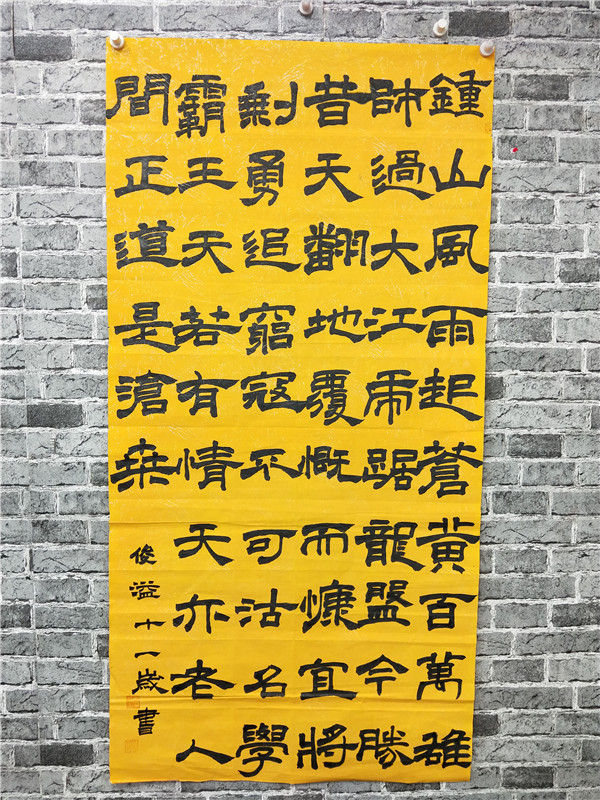 鍾山風雨起蒼黃百萬雄
師過大江虎踞龍盤今勝
昔天翻地覆慨而慷宜將
剩勇追窮寇不可沽名學
霸王天若有情天亦老人
間正道是滄桑
俊溢十一歲書